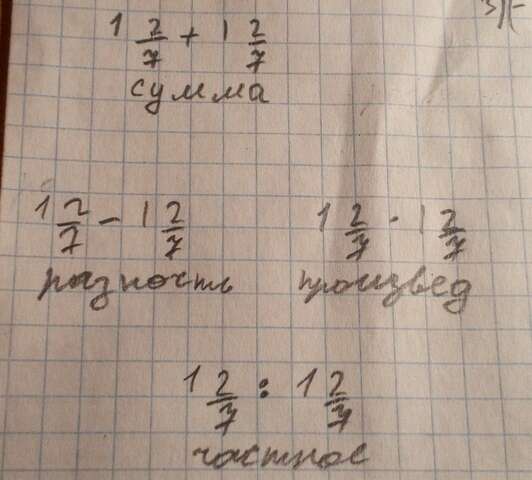 1 2/7 + 1 2/7
сумма
1 2/7 - 1 2/7
разность
1 2/7 · 1 2/7
произвед
1 2/7 : 1 2/7
частное